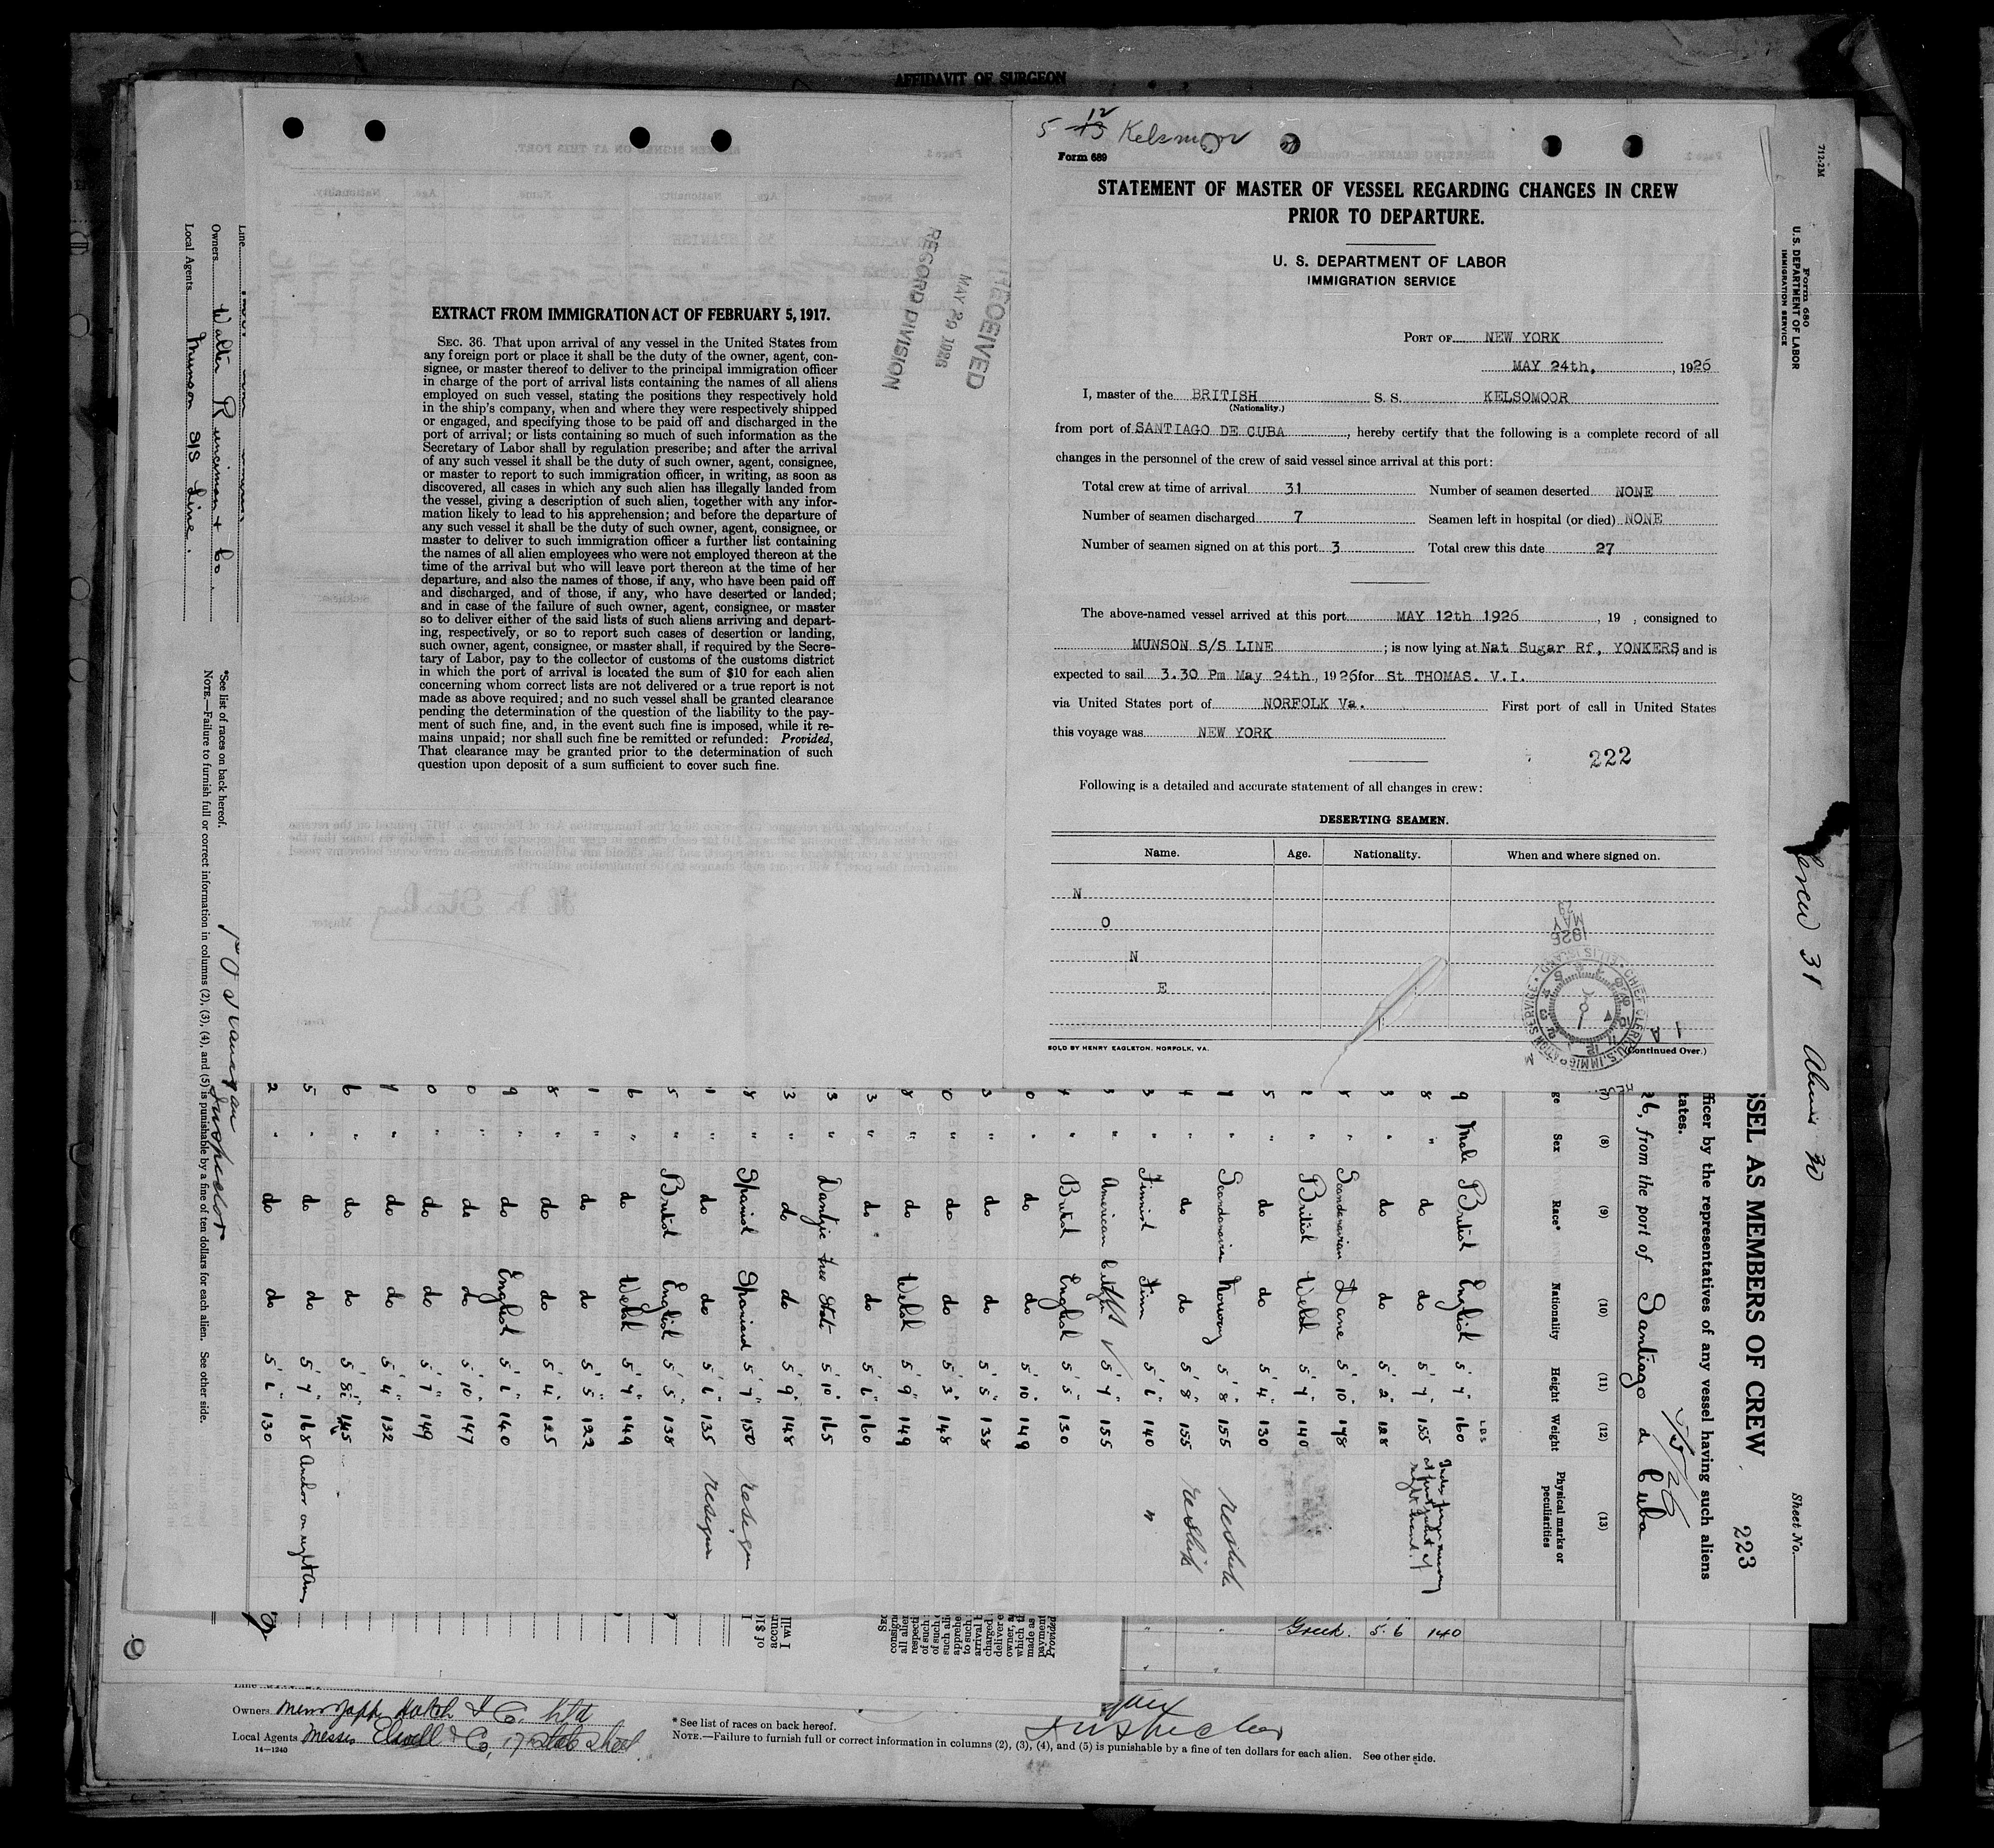 AFFIDAVIT OF SURGEON
EXTRACT FROM IMMIGRATION ACT OF FEBRUARY 5, 1917.
SEC. 36. That upon arrival of any vessel in the United States from
any foreign port or place it shall be the duty of the owner, agent, con-
signee, or master thereof to deliver to the principal immigration officer
in charge of the port of arrival lists containing the names of all aliens
employed on such vessel, stating the positions they respectively hold
in the ship's company, when and where they were respectively shipped
or engaged, and specifying those to be paid off and discharged in the
port of arrival; or lists containing so much of such information as the
Secretary of Labor shall by regulation prescribe; and after the arrival
of any such vessel it shall be the duty of such owner, agent, consignee,
or master to report to such immigration officer, in writing, as soon as
discovered, all cases in which any such alien has illegally landed from
the vessel, giving a description of such alien, together with any infor-
mation likely to lead to his apprehension; and before the departure of
any such vessel it shall be the duty of such owner, agent, consignee, or
master to deliver to such immigration officer a further list containing
the names of all alien employees who were not employed thereon at the
time of the arrival but who will leave port thereon at the time of her
departure, and also the names of those, if any, who have been paid off
and discharged, and of those, if any, who have deserted or landed;
and in case of the failure of such owner, agent, consignee, or master
so to deliver either of the said lists of such aliens arriving and depart-
ing, respectively, or so to report such cases of desertion or landing,
such owner, agent, consignee, or master shall, if required by the Secre-
tary of Labor, pay to the collector of customs of the customs district
in which the port of arrival is located the sum of $10 for each alien
concerning whom correct lists are not delivered or a true report is not
made as above required; and no such vessel shall be granted clearance
pending the determination of the question of the liability to the pay-
ment of such fine, and, in the event such fine is imposed, while it re-
mains unpaid; nor shall such fine be remitted or refunded: Provided,
That clearance may be granted prior to the determination of such
question upon deposit of a sum sufficient to cover such fine.
RECEIVED
MAY 29 1926
RECORD DIVISION
5 13 12 Kelsmoor
Form 689
STATEMENT OF MASTER OF VESSEL REGARDING CHANGES IN CREW
PRIOR TO DEPARTURE.
U. S. DEPARTMENT OF LABOR
IMMIGRATION SERVICE
PORT OF NEW YORK
MAY 24th, , 1926
I, master of the BRITISH S. S. KELSOMOOR
(Nationality.)
from port of SANTIAGO DE CUBA , hereby certify that the following is a complete record of all
changes in the personnel of the crew of said vessel since arrival at this port:
Total crew at time of arrival 31 Number of seamen deserted NONE
Number of seamen discharged 7 Seamen left in hospital (or died) NONE
Number of seamen signed on at this port 3 Total crew this date 27
The above-named vessel arrived at this port MAY 12th 1926 , 19 , consigned to
MUNSON S/S LINE ; is now lying at Nat Sugar Rf, YONKERS and is
expected to sail 3.30 Pm May 24th , 1926 for St THOMAS. V.I.
via United States port of NORFOLK Va. First port of call in United States
this voyage was NEW YORK
222
Following is a detailed and accurate statement of all changes in crew:
DESERTING SEAMEN.
Name. Age. Nationality. When and where signed on.
N
O
N
E
1926
MAY
CHIEF CLERK U.S. IMMIGRATION SERVICE ELLIS ISLAND
SOLD BY HENRY EAGLETON, NORFOLK, VA.
(Continued Over.)
712-2M
Form 680
U. S. DEPARTMENT OF LABOR
IMMIGRATION SERVICE
Crew 31 Aliens 30
Sheet No.
SSEL AS MEMBERS OF CREW
223
fficer by the representatives of any vessel having such aliens
tates.
26, from the port of Santiago de Cuba
(8) (9) (10) (11) (12) (13)
Sex Race* Nationality Height Weight Physical marks or peculiarities
9 Male British English 5' 7" 160
8 " do do 5' 7" 155
3 " do do 5' 2" 128
" Scandanavian Dane 5' 10" 178
2 " British Welsh 5' 7" 140
5 " do do 5' 4" 130
" Scandanavian Norway 5' 8" 155
4 " do do 5' 8" 155
3 " Finnish Finn 5' 6" 140 "
3 " American 5' 7" 155
4 " British English 5' 5" 130
0 " do do 5' 10" 149
3 " do do 5' 5" 138
0 " do do 5' 3" 148
8 " do Welsh 5' 9" 149
3 " do do 5' 6" 160
3 " Dantzic Free State 5' 10" 165
3 " do do 5' 9" 148
8 " Spanish Spaniard 5' 7" 150
1 " do do 5' 6" 135
5 " British English 5' 5" 138
6 " do Welsh 5' 7" 149
1 " do do 5' 5" 122
8 " do do 5' 4" 125
9 " do English 5' 6" 140
0 " do do 5' 10" 147
0 " do do 5' 7" 149
do do 5' 4" 132
6 " do do 5' 8" 145
5 " do do 5' 7" 168 Anchor on right arm
2 " do do 5' 6" 130
Line
Owners Walter Runciman & Co.
Local Agents Munson S/S Line.
*See list of races on back hereof.
NOTE.—Failure to furnish full or correct information in columns (2), (3), (4), and (5) is punishable by a fine of ten dollars for each alien. See other side.
Inspector
Greek. 5.6 140
Owners
Local Agents Messrs
14—1240
* See list of races on back hereof.
NOTE.—Failure to furnish full or correct information in columns (2), (3), (4), and (5) is punishable by a fine of ten dollars for each alien. See other side.
Inspector